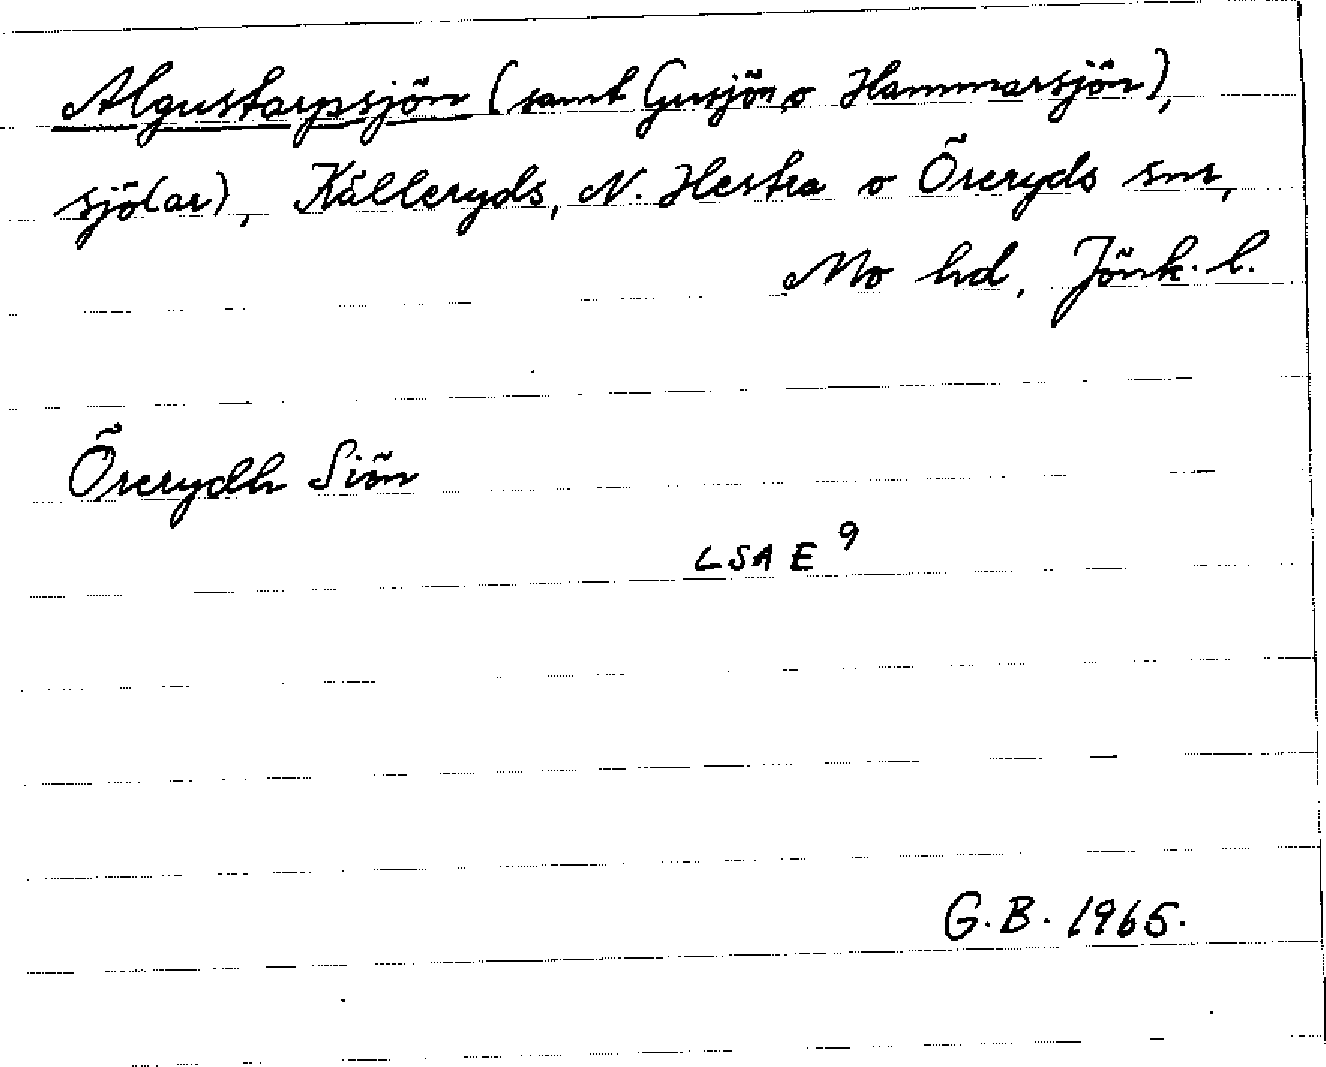 Algustorpsjön (samt Gusjön o Hammarsjön),
sjö(ar), Kålleryds, N. Hestra o Öreryds snr,
Mo hd, Jönk. l.
Örerydh Siön
LSA E 9
G.B. 1965.